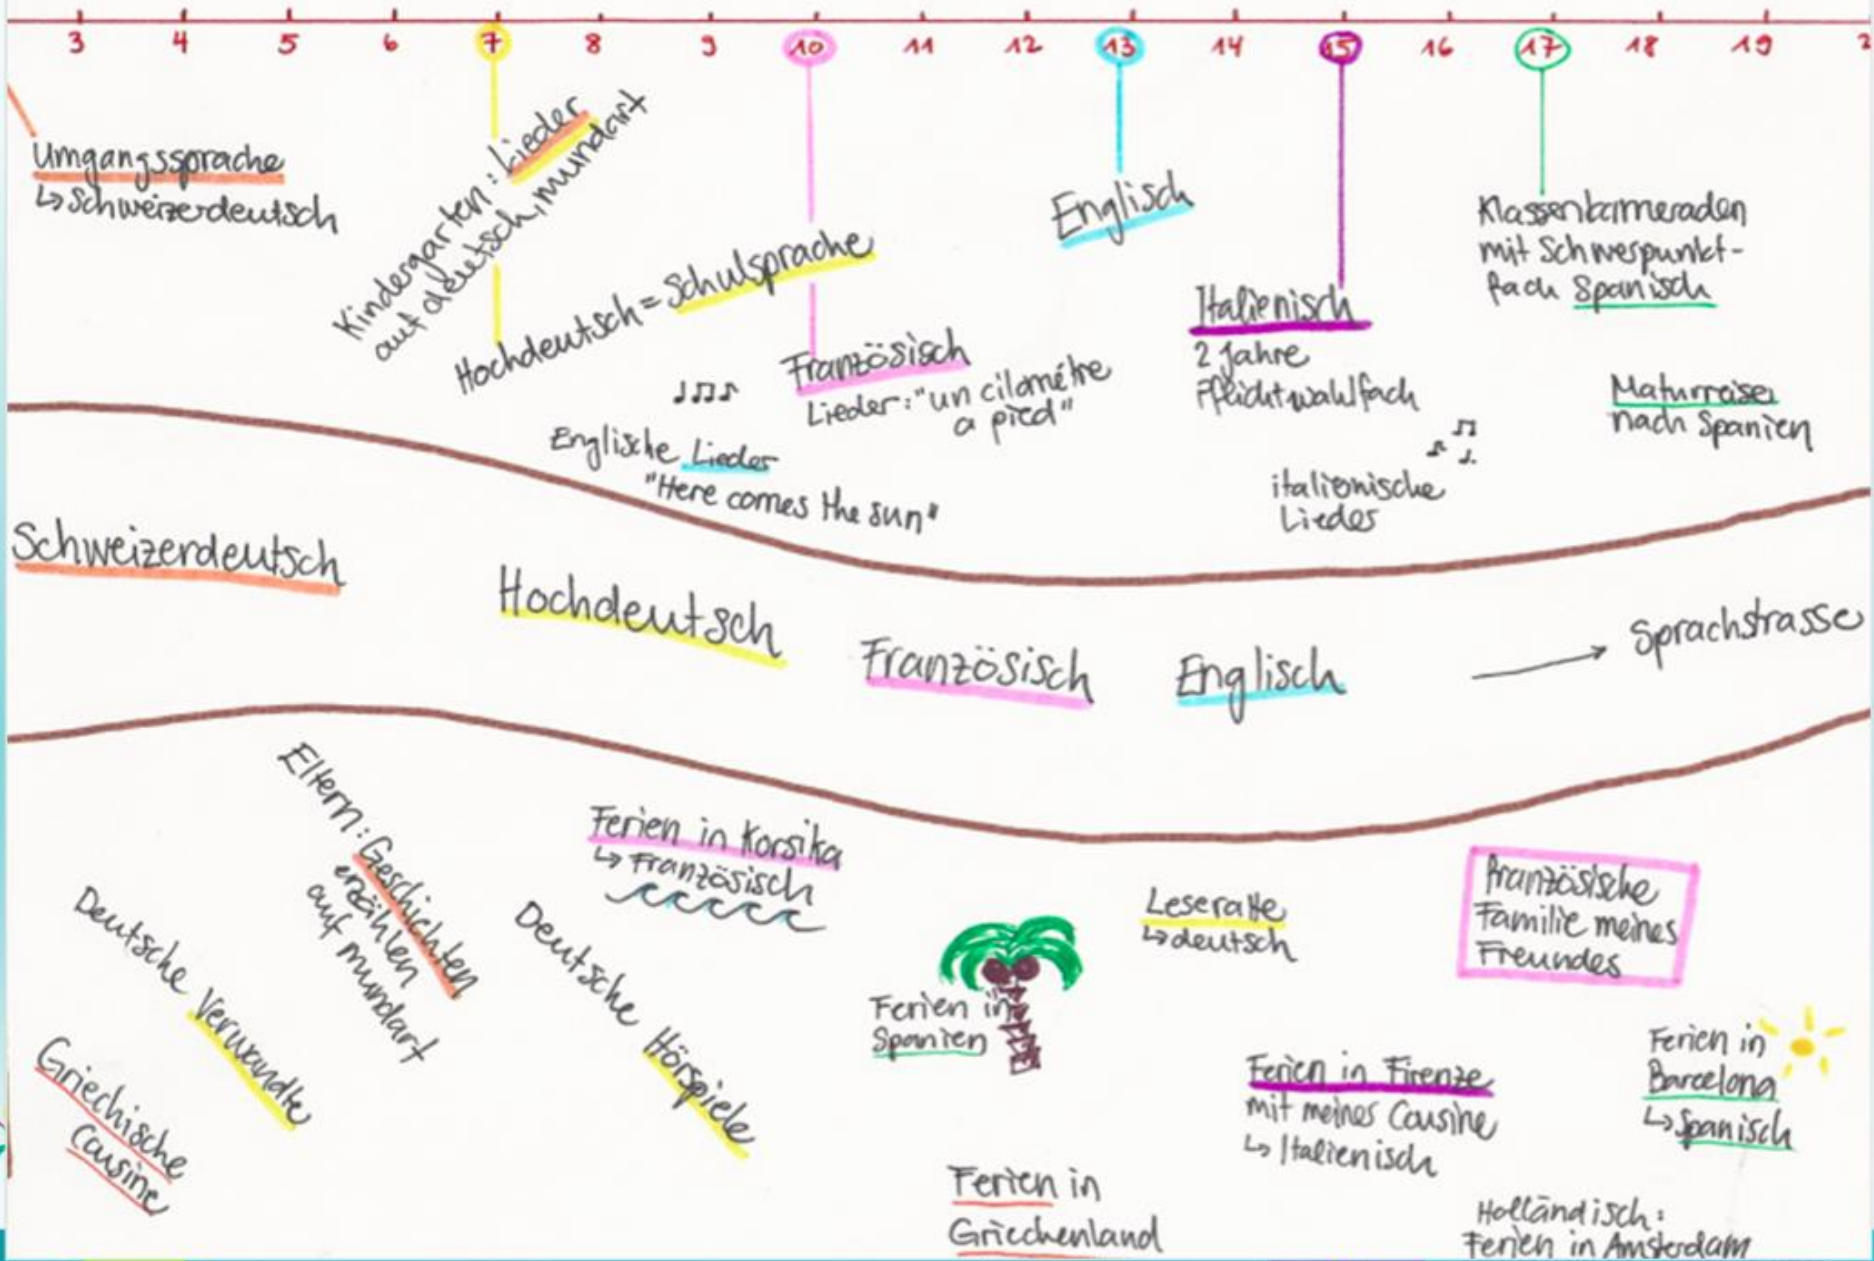 3 4 5 6 7 8 9 10 11 12 13 14 15 16 17 18 19 2
Umgangssprache
↳ Schweizerdeutsch
Kindergarten: Lieder
auf deutsch, mundart
Hochdeutsch = Schulsprache
Englische Lieder
"Here comes the sun"
Französisch
Lieder: "un cilométre
a pied"
Englisch
Italienisch
2 Jahre
Pflichtwahlfach
italienische
Lieder
Klassenkameraden
mit Schwerpunkt-
fach Spanisch
Maturreise
nach Spanien
Schweizerdeutsch
Hochdeutsch
Französisch
Englisch
→ Sprachstrasse
Eltern: Geschichten
erzählen
auf mundart
Deutsche Verwandte
Griechische
Causine
Ferien in Korsika
↳ Französisch
Deutsche Hörspiele
Ferien in
Spanien
Ferien in
Griechenland
Leseratte
↳ deutsch
Ferien in Firenze
mit meiner Causine
↳ Italienisch
Französische
Familie meines
Freundes
Ferien in
Barcelona
↳ Spanisch
Holländisch:
Ferien in Amsterdam